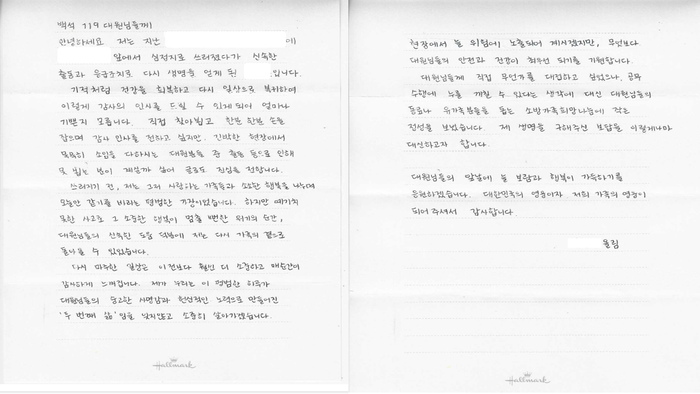 백석 119 대원님들께!
안녕하세요 저는 지난 에
앞에서 심정지로 쓰러졌다가 신속한
출동과 응급조치로 다시 생명을 얻게 된 입니다.
기적처럼 건강을 회복하고 다시 일상으로 복귀하여
이렇게 감사의 인사를 드릴 수 있게되어 얼마나
기쁜지 모릅니다. 직접 찾아뵙고 한분 한분 손을
잡으며 감사 인사를 전하고 싶지만, 긴박한 현장에서
묵묵히 소임을 다하시는 대원분들 중 출동 등으로 인해
못 뵙는 분이 계실까 싶어 글로도 진심을 전합니다.
쓰러지기 전, 저는 그저 사랑하는 가족들과 소소한 행복을 나누며
무탈만 감기를 바라는 평범한 가장이었습니다. 하지만 예기치
못한 사고로 그 소중한 행복이 멈출 뻔한 위기의 순간,
대원님들의 신속한 도움 덕분에 저는 다시 가족의 곁으로
돌아올 수 있었습니다.
다시 마주한 일상은 이전보다 훨씬 더 소중하고 매순간이
감사하게 느껴집니다. 제가 누리는 이 평범한 하루가
대원님들의 숭고한 사명감과 헌신적인 노력으로 만들어진
'두 번째 삶'임을 잊지않고 소중히 살아가겠습니다.
Hallmark
현장에서 늘 위험에 노출되어 계시겠지만, 무엇보다
대원님들의 안전과 건강이 최우선 되기를 기원합니다.
대원님들께 직접 무언가를 대접하고 싶었으나, 공무
수행에 누를 끼칠 수 있다는 생각에 대신 대원님들의
동료나 유가족분들을 돕는 소방가족희망나눔에 작은
정성을 보냈습니다. 제 생명을 구해주신 보답을 이렇게나마
대신하고자 합니다.
대원님들의 앞날에 늘 보람과 행복이 가득하기를
응원하겠습니다. 대한민국의 영웅이자 저희 가족의 영웅이
되어 주셔서 감사합니다.
올림
Hallmark